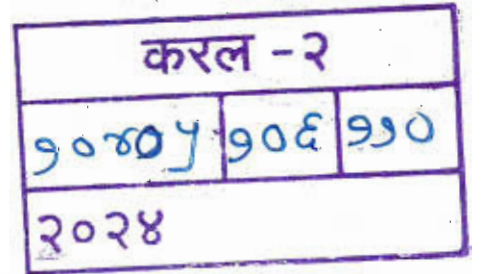 करल - २
१०४०५ १०६ ११०
२०२४